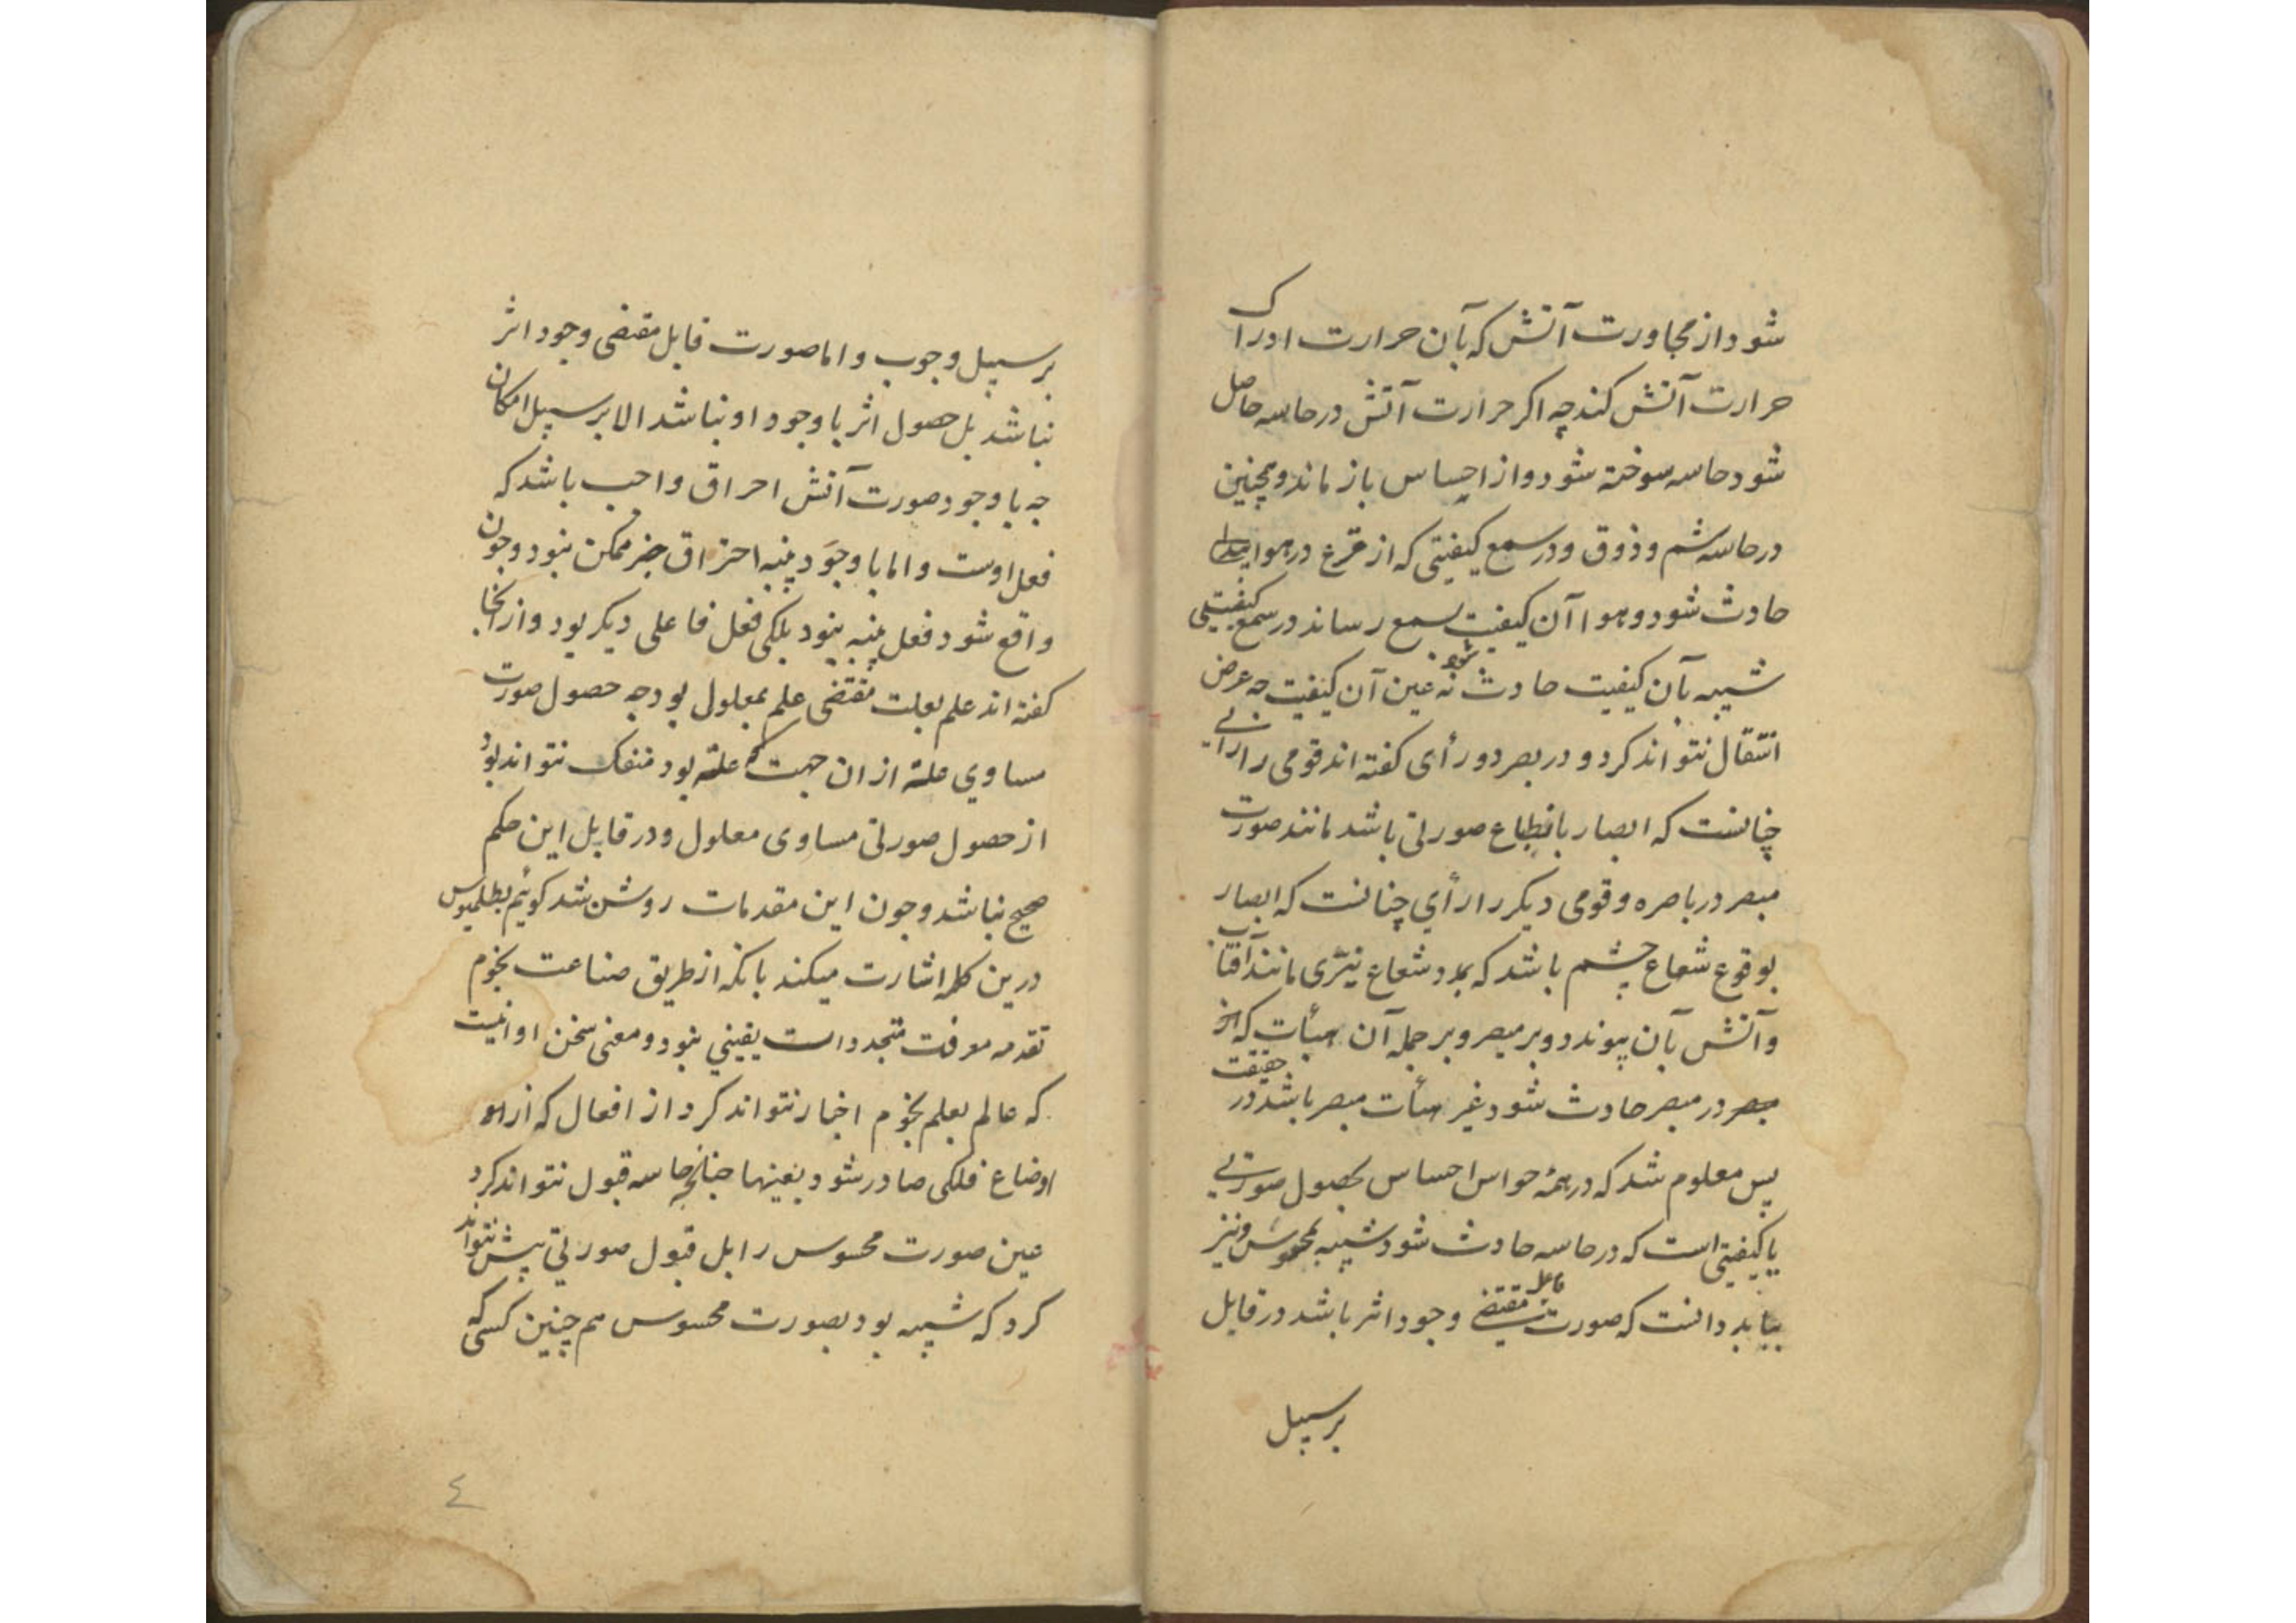 شود از مجاورت آتش که بآن حرارت ادراک
حرارت آتش کند چه اکر حرارت آتش در حاسه حاصل
شود حاسه سوخته شود و از احساس باز ماند و همچنین
در حاسه شم و ذوق و در سمع کیفیتی که از قرع در هوا
حادث شود و هوا آن کیفیت بسمع رساند در سمع کیفیتی
شبیه بآن کیفیت حادث شود نه عین آن کیفیت چه عرض
انتقال نتواند کرد و در بصر دو رأی کفته اند قومی را رایی
چنانست که ابصار بانطباع صورتی باشد مانند صورت
مبصر در باصره و قومی دیکر را رأی چنانست که ابصار
بوقوع شعاع چشم باشد که بمدد شعاع نیّری مانند آفتاب
و آتش بآن پیوندد و بر مبصر و بر جمله آن هیأت که از
مبصر در مبصر حادث شود غیر هیأت مبصر باشد در حقیقت
پس معلوم شد که در همهٔ حواس احساس بحصول صورتی
یا کیفیتی است که در حاسه حادث شود شبیه بمحسوس و نیز
بباید دانست که صورت فاعل مقتضی وجود اثر باشد در قابل
بر سبیل
بر سبیل وجوب و اما صورت قابل مقتضی وجود اثر
نباشد بل حصول اثر با وجود او نباشد الا بر سبیل امکان
چه با وجود صورت آتش احراق واجب باشد که
فعل اوست و اما با وجود پنبه احتراق جز ممکن نبود و چون
واقع شود فعل پنبه نبود بلکی فعل فاعلی دیکر بود و از اینجا
کفته اند علم بعلت مقتضی علم بمعلول بود چه حصول صورت
مساوی علة از ان جهت که علة بود منفک نتواند بود
از حصول صورتی مساوی معلول و در قابل این حکم
صحیح نباشد و چون این مقدمات روشن شد کوئیم بطلمیوس
درین کلمه اشارت میکند بانکه از طریق صناعت نجوم
تقدمه معرفت متجددات یقینی نبود و معنی سخن او انیست
که عالم بعلم نجوم اخبار نتواند کرد از افعال که از
اوضاع فلکی صادر شود بعینها چنانچه حاسه قبول نتواند کرد
عین صورت محسوس را بل قبول صورتی پیش نتواند
کرد که شبیه بود بصورت محسوس هم چنین کسی که
٤